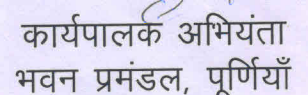 कार्यपालक अभियंता
भवन प्रमंडल, पूर्णियाँ